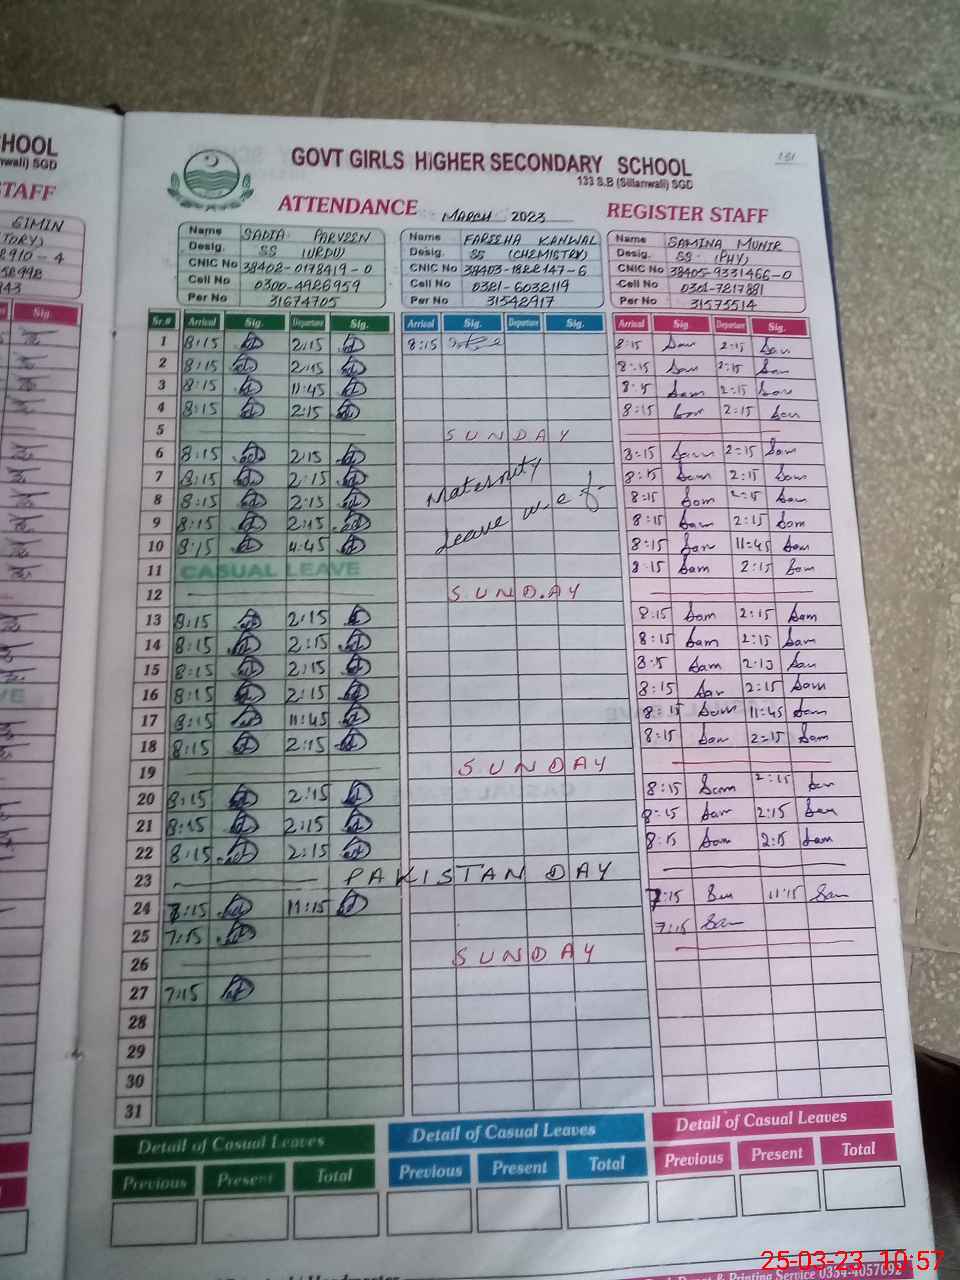 HOOL
nwali) SGD
STAFF
GIMIN
TORY)
8910-4
58998
943
Sig.
151
GOVT GIRLS HIGHER SECONDARY SCHOOL
133 S.B (Sillanwali) SGD
ATTENDANCE MARCH 2023 REGISTER STAFF
Name SADIA PARVEEN Name FAREEHA KANWAL Name SAMINA MUNIR
Desig. SS (URDU) Desig. SS (CHEMISTRY) Desig. SS (PHY)
CNIC No 38402-0178419-0 CNIC No 38403-1822147-6 CNIC No 38405-9331466-0
Cell No 0300-4926959 Cell No 0321-6032119 Cell No 0301-7217891
Per No 31674705 Per No 31542917 Per No 31575514
Sr.# Arrival Sig. Departure Sig. Arrival Sig. Departure Sig. Arrival Sig Departure Sig.
1 8:15 2:15 8:15 8:15 Sam 2:15 Sam
2 8:15 2:15 8:15 Sam 2:15 Sam
3 8:15 11:45 8:15 Sam 2:15 Sam
4 8:15 2:15 8:15 Sam 2:15 Sam
5 SUNDAY
6 8:15 2:15 8:15 Sam 2:15 Sam
7 8:15 2:15 Maternity 8:15 Sam 2:15 Sam
8 8:15 2:15 8:15 Sam 2:15 Sam
9 8:15 2:15 Leave w.e.f- 8:15 Sam 2:15 Sam
10 8:15 11:45 8:15 Sam 11:45 Sam
11 CASUAL LEAVE 8:15 Sam 2:15 Sam
12 SUNDAY
13 8:15 2:15 8:15 Sam 2:15 Sam
14 8:15 2:15 8:15 Sam 2:15 Sam
15 8:15 2:15 8:15 Sam 2:15 Sam
16 8:15 2:15 8:15 Sam 2:15 Sam
17 8:15 11:45 8:15 Sam 11:45 Sam
18 8:15 2:15 8:15 Sam 2:15 Sam
19 SUNDAY
20 8:15 2:15 8:15 Sam 2:15 Sam
21 8:15 2:15 8:15 Sam 2:15 Sam
22 8:15 2:15 8:15 Sam 2:15 Sam
23 PAKISTAN DAY
24 7:15 11:15 7:15 Sam 11:15 Sam
25 7:15 7:15 Sam
26 SUNDAY
27 7:15
28
29
30
31
Detail of Casual Leaves Detail of Casual Leaves Detail of Casual Leaves
Previous Present Total Previous Present Total Previous Present Total
& Printing Service 0334-4057092
25-03-23 10:57